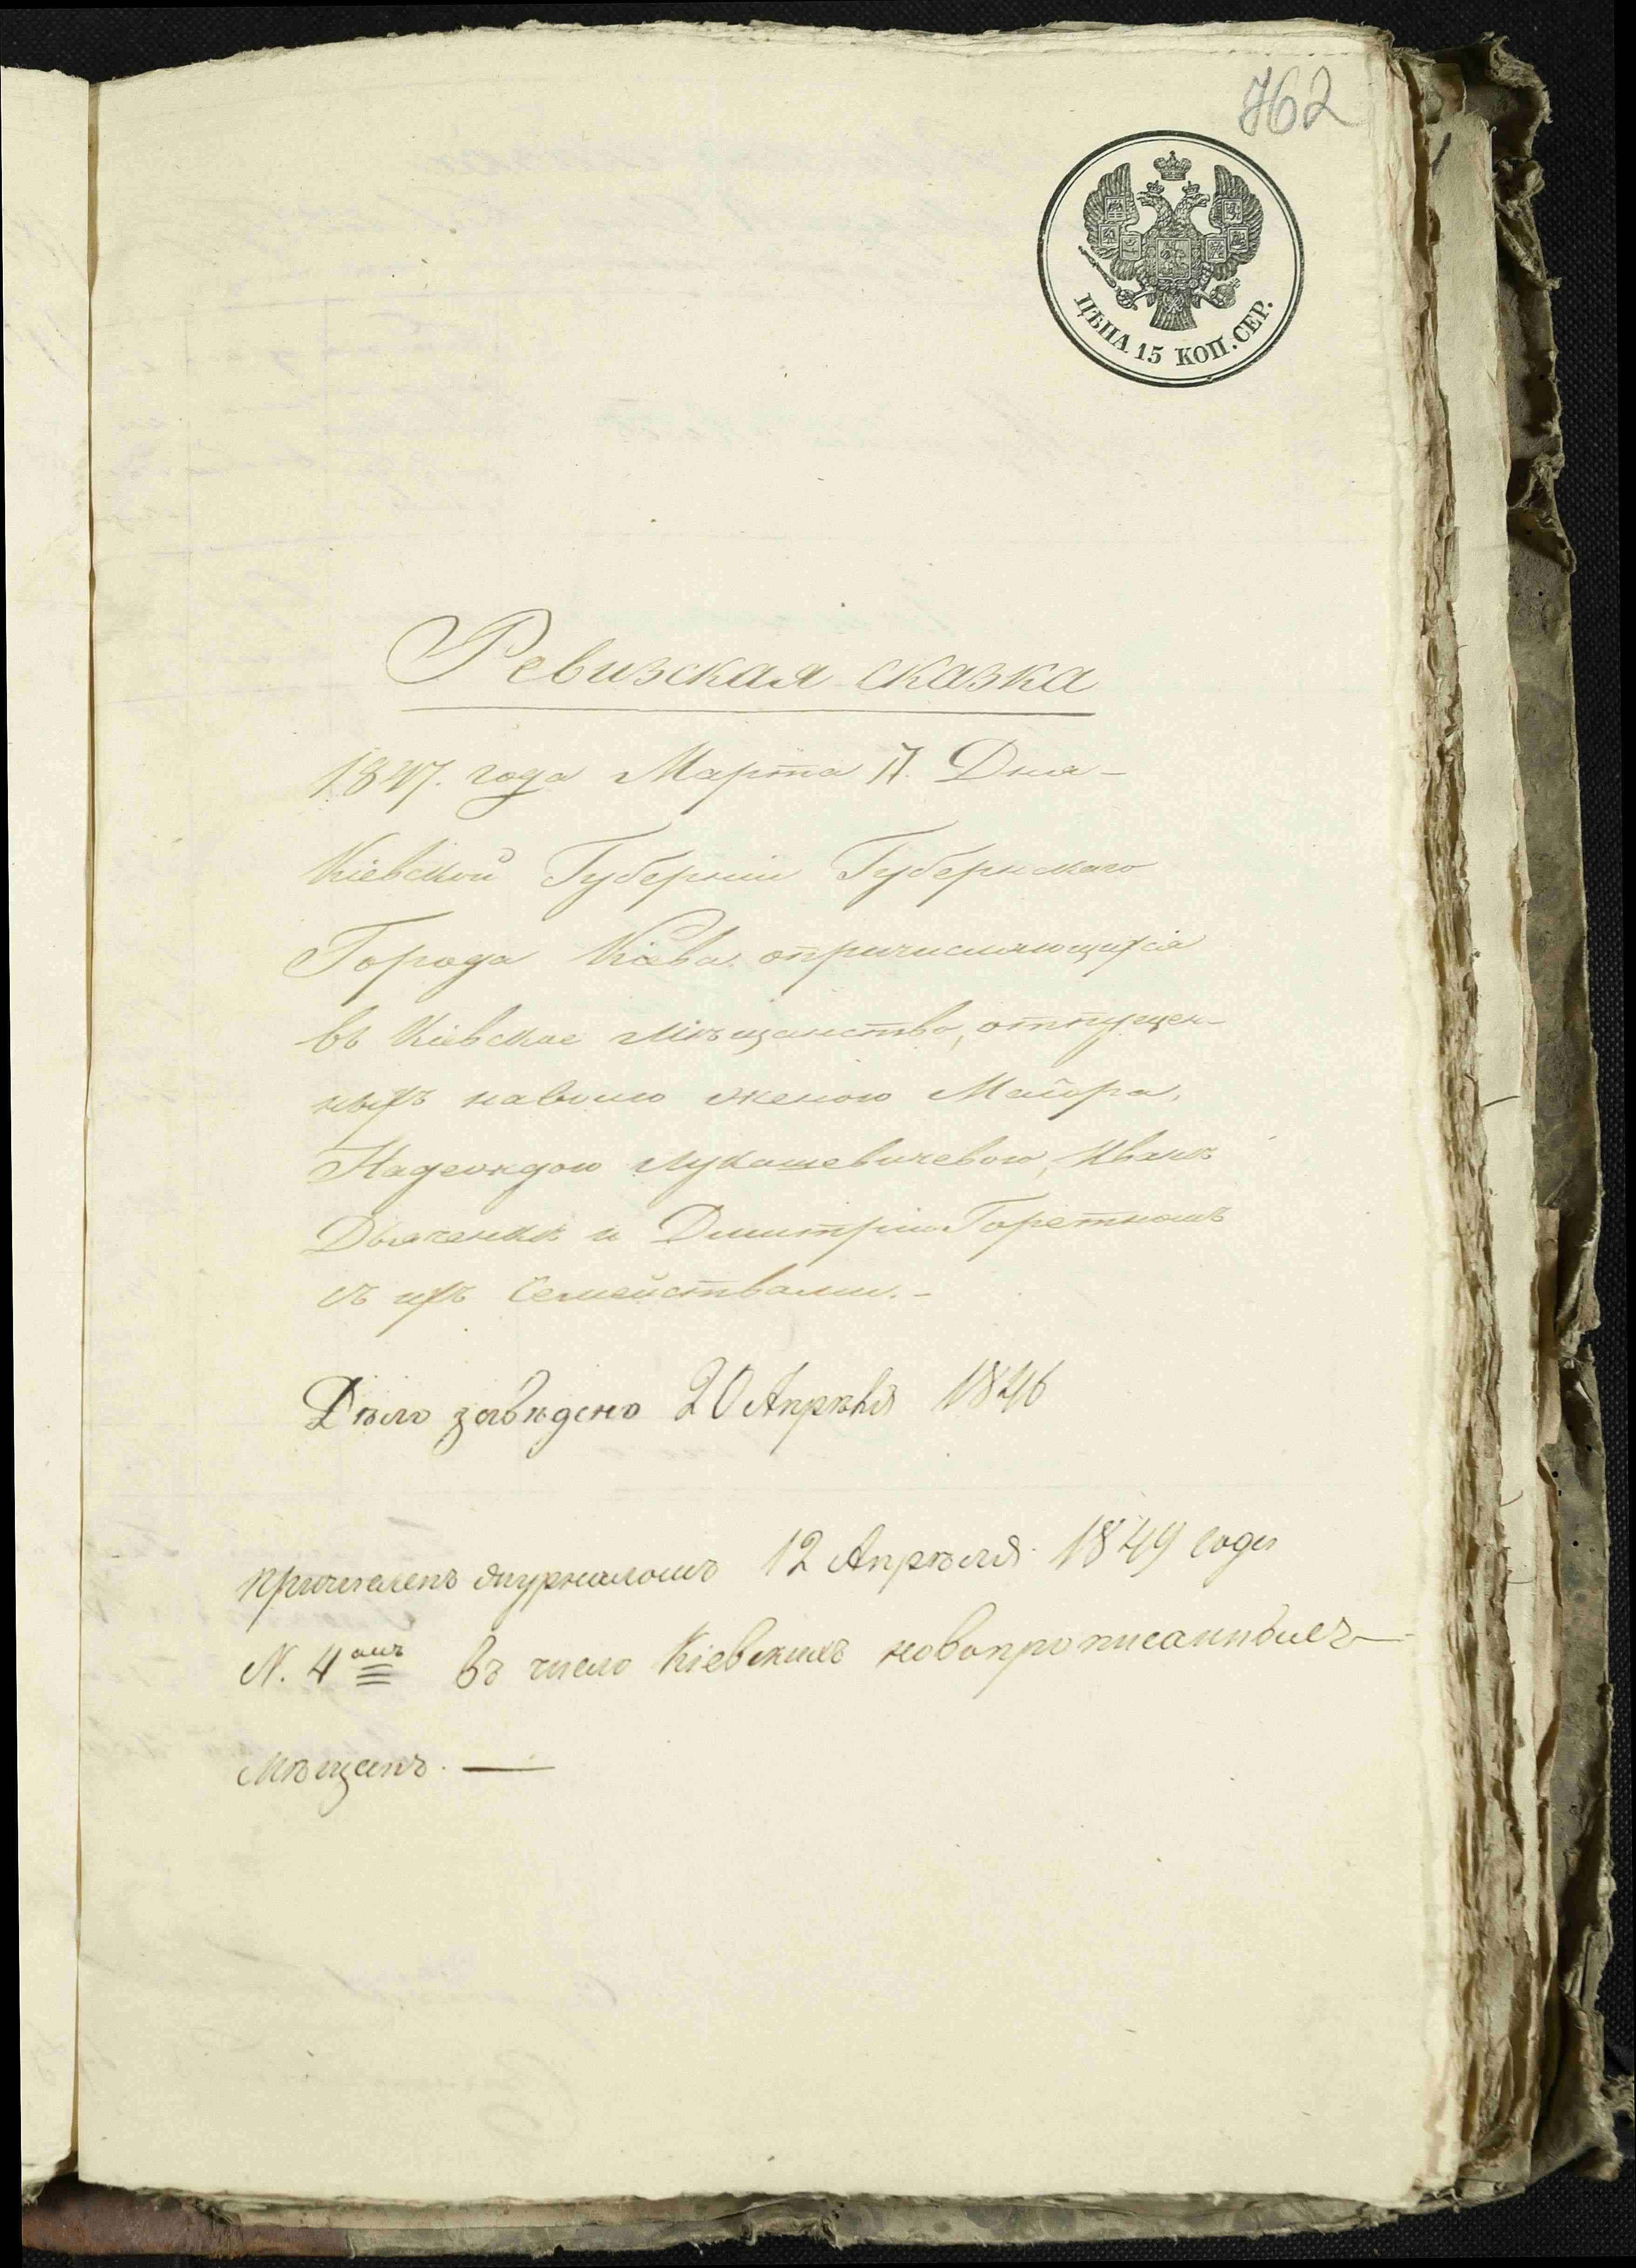 762
ЦѢНА 15 КОП. СЕР.
Ревизская сказка
1847. года Марта 17. Дня -
Кіевской Губерніи Губернскаго
Города Кіева о причисляющихся
въ Кіевское мѣщанство, отпущен-
ныхъ наволю женою Маіора,
Надеждою Лукашевичевою, Иванѣ
Дьяченкѣ и Дмитріи
съ ихъ Семействами. -
Дѣло завѣдено 20 Апрѣля 1846
причисленъ журналомъ 12 Апрѣля 1849 года
N. 4 омъ въ число Кіевскихъ новопрописанныхъ -
мѣщанъ. —